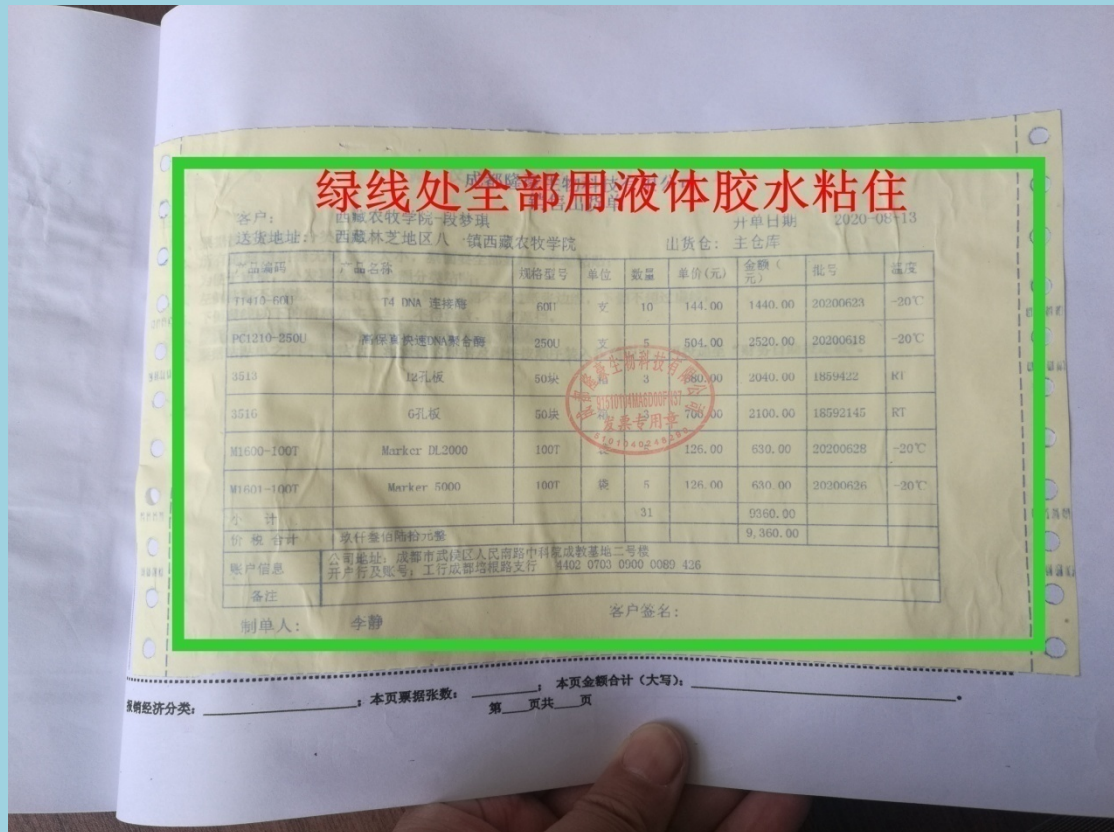 绿线处全部用液体胶水粘住
客户: 西藏农牧学院-段梦琪 开单日期 2020-08-13
送货地址: 西藏林芝地区八一镇西藏农牧学院 出货仓: 主仓库
产品编码 产品名称 规格型号 单位 数量 单价(元) 金额(元) 批号 温度
T1410-60U T4 DNA 连接酶 60U 支 10 144.00 1440.00 20200623 -20℃
PC1210-250U 高保真快速DNA聚合酶 250U 支 5 504.00 2520.00 20200618 -20℃
3513 12孔板 50块 3 680.00 2040.00 1859422 RT
3516 6孔板 50块 3 700.00 2100.00 18592145 RT
M1600-100T Marker DL2000 100T 126.00 630.00 20200628 -20℃
M1601-100T Marker 5000 100T 袋 5 126.00 630.00 20200626 -20℃
小 计 31 9360.00
价 税 合计 玖仟叁佰陆拾元整 9,360.00
账户信息 公司地址: 成都市武侯区人民南路中科院成教基地二号楼
开户行及账号: 工行成都培根路支行 4402 0703 0900 0089 426
备注
制单人: 李静 客户签名:
发票专用章
报销经济分类: ; 本页票据张数: ; 本页金额合计(大写): 。
第 页共 页